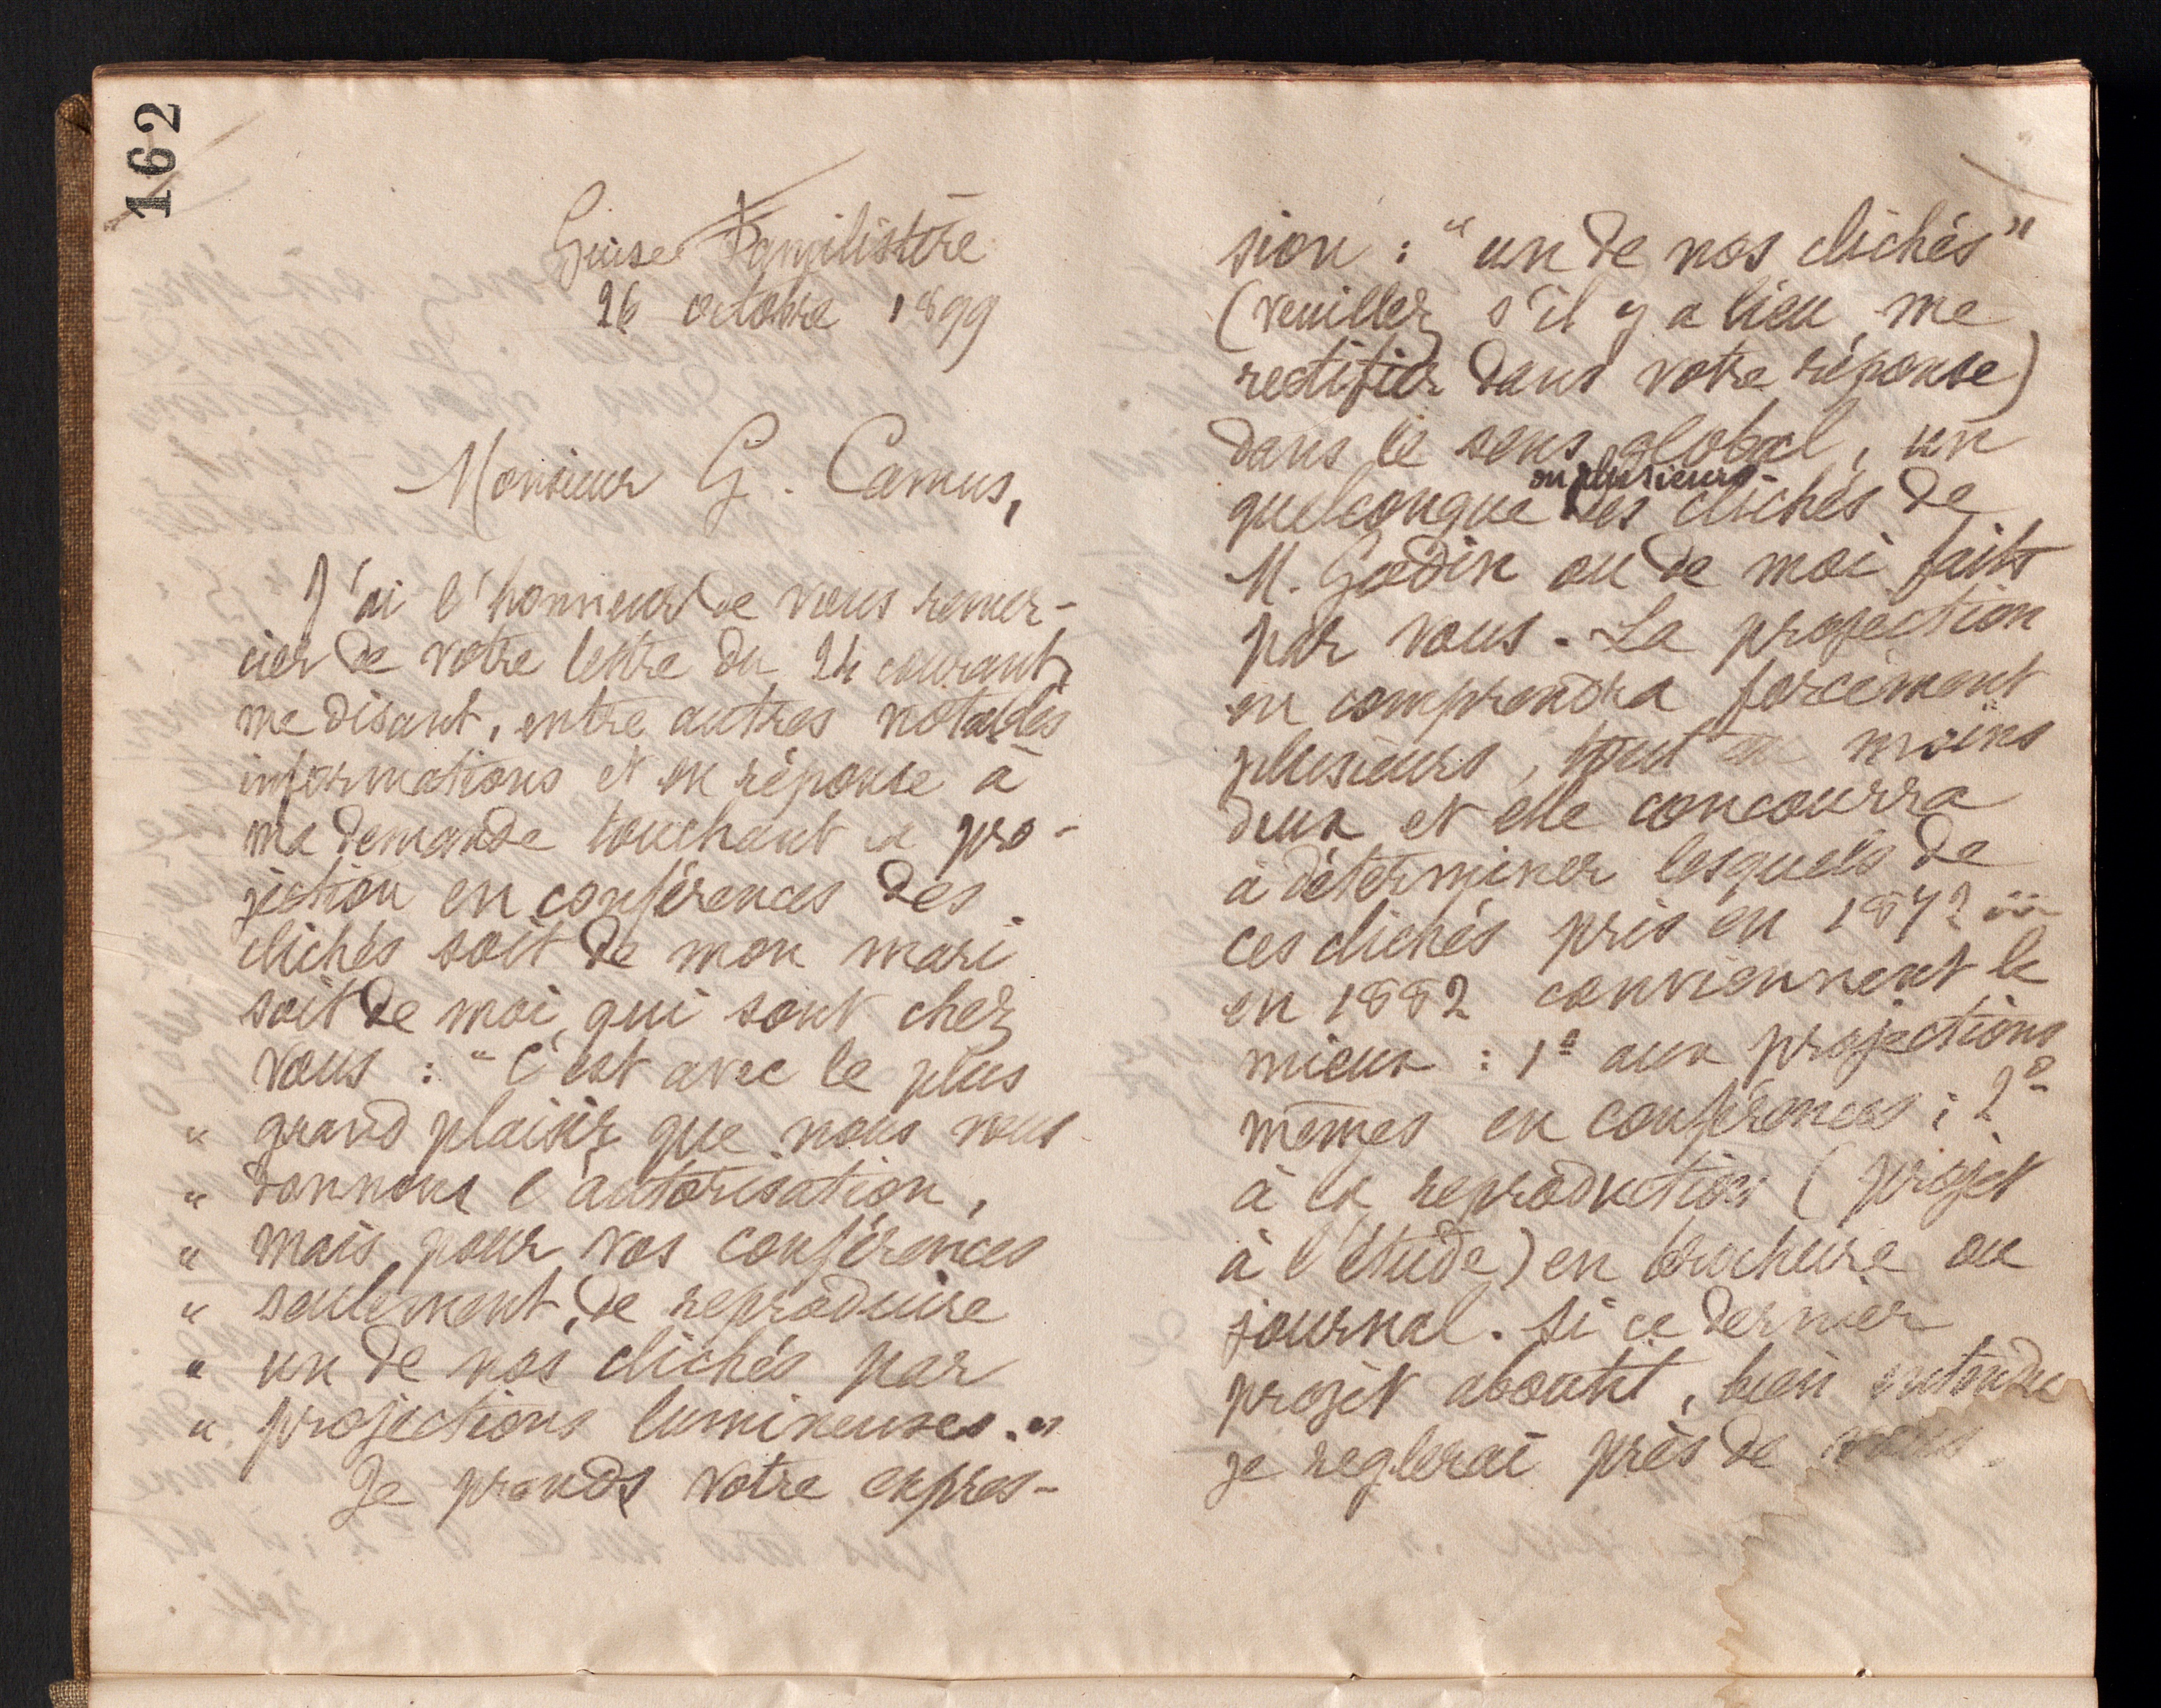 162
Guise Familistère
26 octobre 1899
Monsieur G. Camus,
J'ai l'honneur de vous remer-
cier de votre lettre du 24 courant,
me disant, entre autres notables
informations et en réponse à
ma demande touchant la pro-
jection en conférences des
clichés soit de mon mari
soit de moi, qui sont chez
vous : " C'est avec le plus
" grand plaisir que nous vous
" donnons l'autorisation,
" mais pour vos conférences
" seulement, de reproduire
" un de nos clichés par
" projections lumineuses."
Je prends votre expres-
sion : " un de nos clichés "
(veuillez s'il y a lieu me
rectifier dans votre réponse)
dans le sens global, un
ou plusieurs
quelconque des clichés de
M. Godin ou de moi faits
par vous. La projection
en comprendra forcément
plusieurs, tout au moins
deux et elle concourra
à déterminer lesquels de
ces clichés pris en 1872 ou
en 1882 conviennent le
mieux : 1º aux projections
mêmes en conférences ; 2º
à la reproduction (projet
à l'étude) en brochure ou
journal. Si ce dernier
projet aboutit, bien entendu
je reglerai près de vous